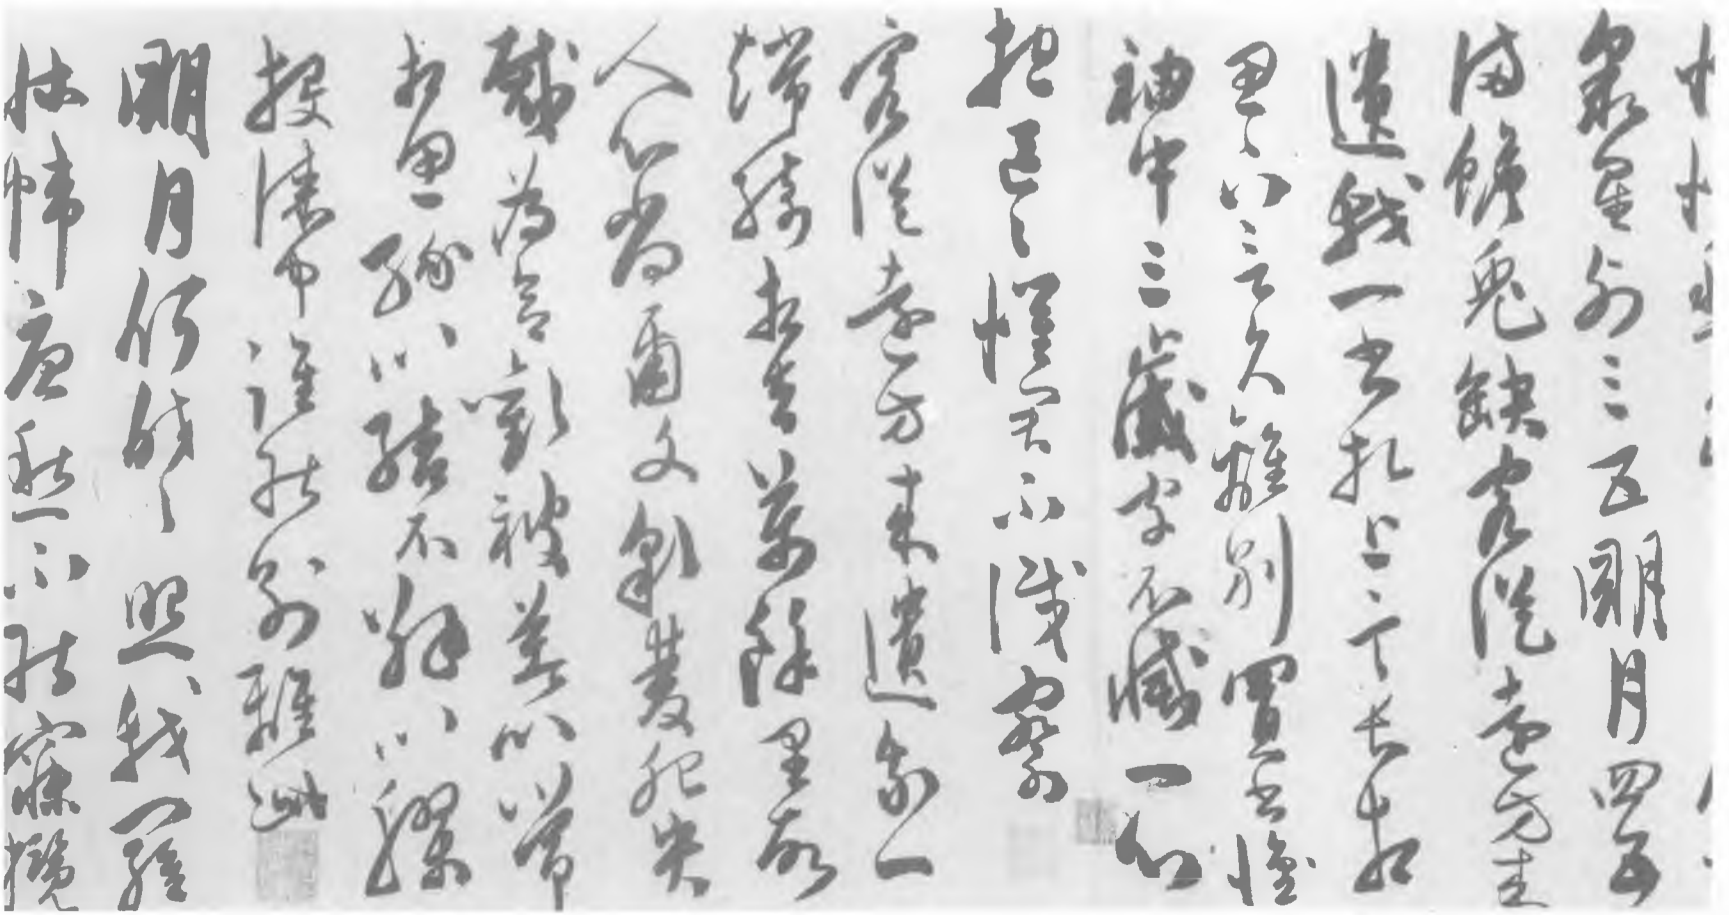 眾星列三五明月四五
滿蟾兔缺客從遠方来
遺我一書札上言長相
思下言久離別置書懷
袖中三歲字不滅一心
抱區々懼君不識察
客從遠方来遺我一
端綺相去萬餘里故
人心尚爾文彩雙夗央
裁為合歡被著以常
相思緣以結不解以膠
投漆中誰能別離此
明月何皎々照我羅
牀幃憂愁不能寐攬